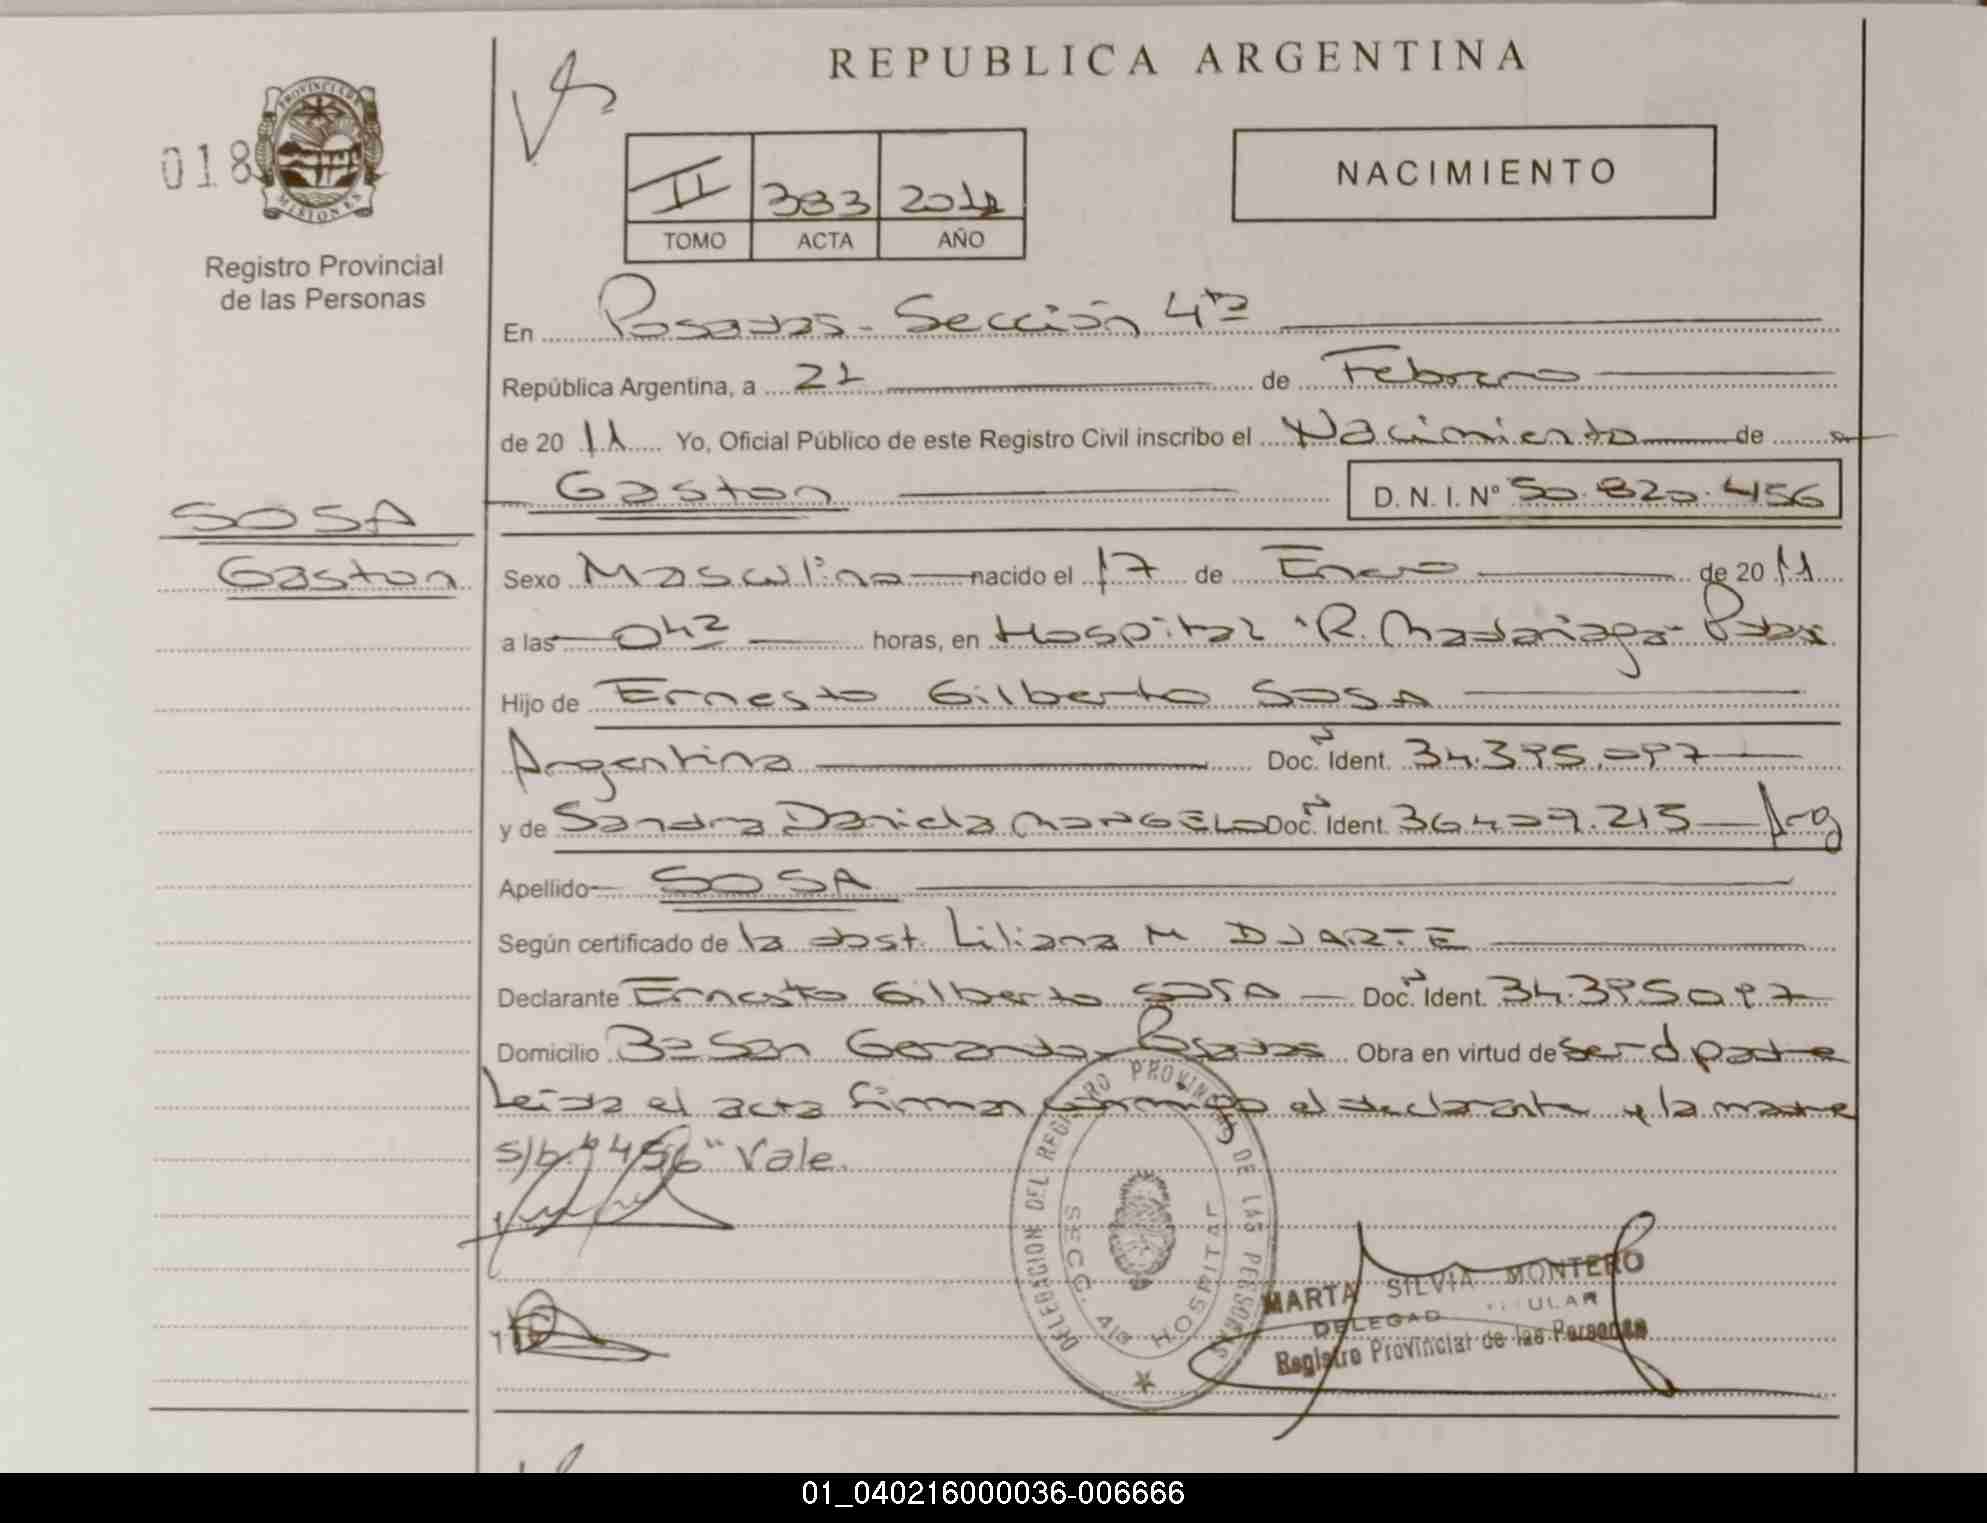 REPUBLICA ARGENTINA
018
PROVINCIA DE
MISIONES
Registro Provincial
de las Personas
II 383 2011
TOMO ACTA AÑO
NACIMIENTO
En Posadas - Sección 4ta
República Argentina, a 21 de Febrero
de 20 11 Yo, Oficial Público de este Registro Civil inscribo el Nacimiento de
Gaston D. N. I. Nº 50.820.456
SOSA
Gaston
Sexo Masculino nacido el 17 de Enero de 2011
a las 042 horas, en Hospital "R. Madariaga - Pdas
Hijo de Ernesto Gilberto SOSA
Argentina Doc. Ident. 34.395.097
y de Sandra Daniela MANGELO Doc. Ident. 36.409.215 Arg
Apellido SOSA
Según certificado de la obst. Liliana M DUARTE
Declarante Ernesto Gilberto SOSA Doc. Ident. 34.395.097
Domicilio Bº San Gerardo, Posadas Obra en virtud de ser el padre
Leida el acta firman conmigo el declarante y la madre
s/b. "456" Vale.
DELEGACION DEL REGISTRO PROVINCIAL DE LAS PERSONAS
SECC. 4ta HOSPITAL
MARTA SILVIA MONTERO
DELEGADO TITULAR
Registro Provincial de las Personas
01_040216000036-006666